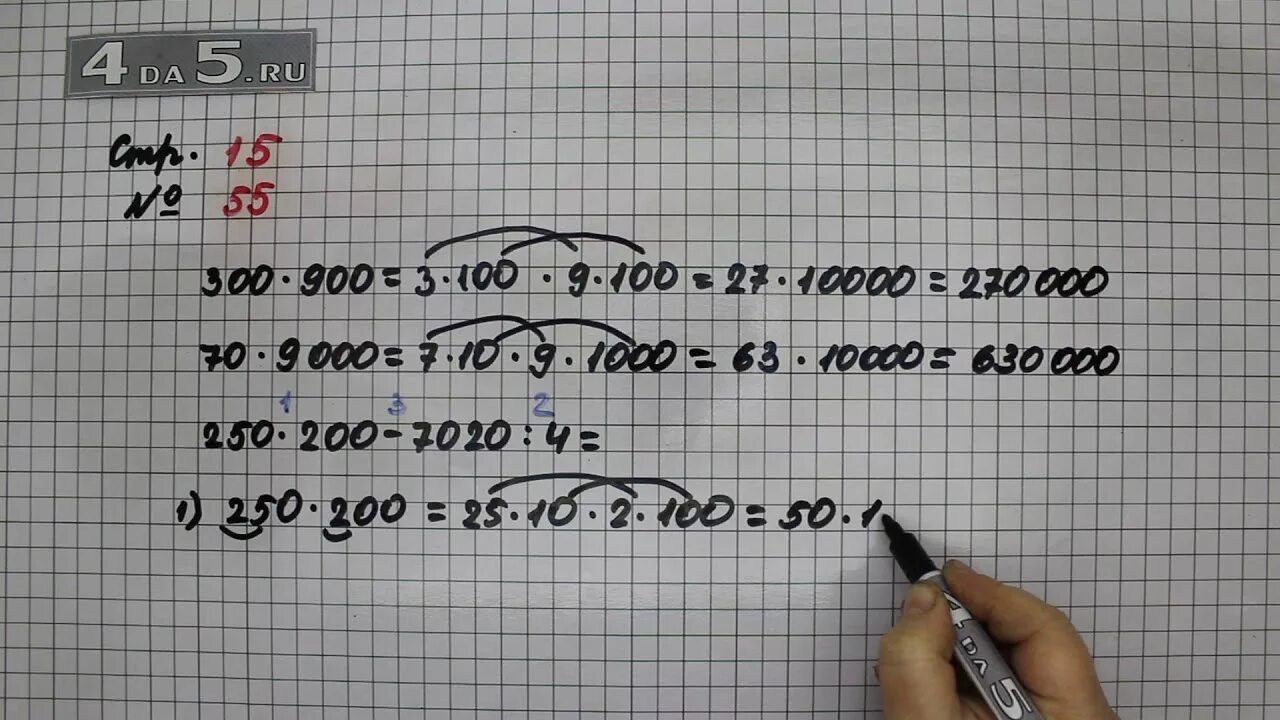 4DA5.RU
Стр. 15
№ 55
300·900=3·100·9·100=27·10000=270000
70·9000=7·10·9·1000=63·10000=630000
1 3 2
250·200-7020:4=
1) 250·200=25·10·2·100=50·1
4DA5